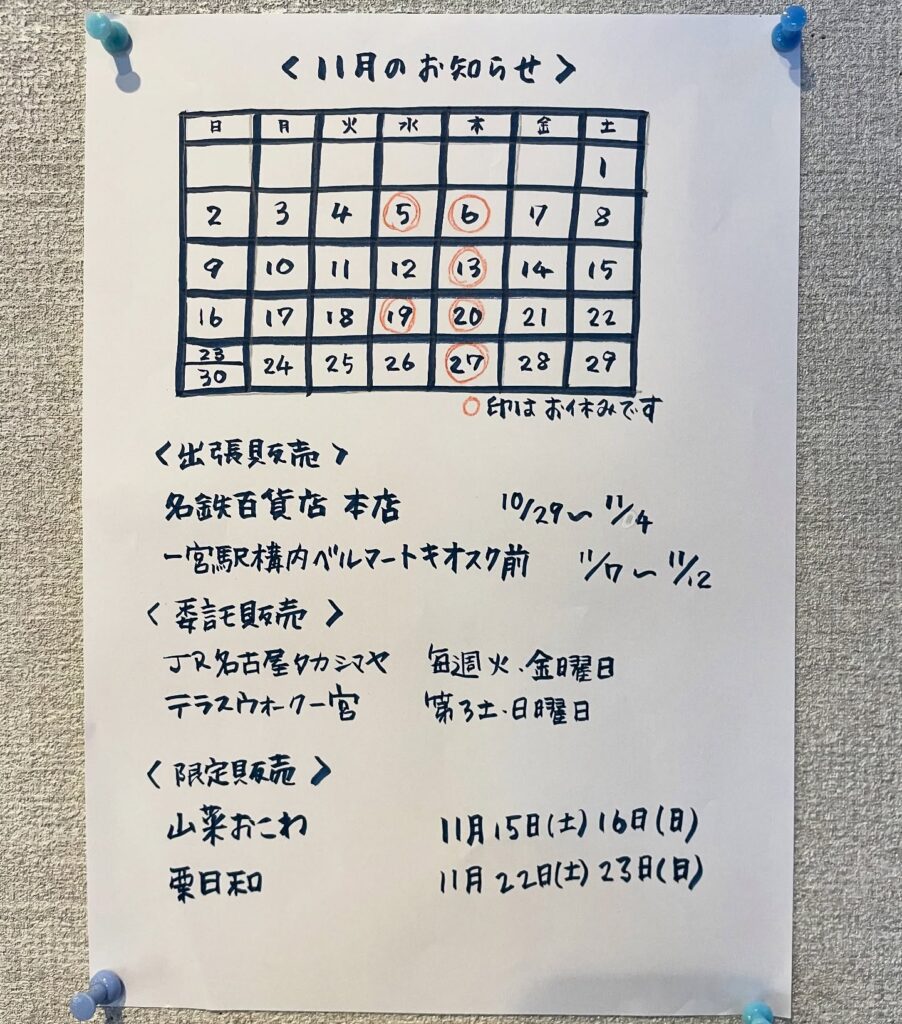 〈11月のお知らせ〉
日 月 火 水 木 金 土
1
2 3 4 5 6 7 8
9 10 11 12 13 14 15
16 17 18 19 20 21 22
23/30 24 25 26 27 28 29
○印はお休みです
〈出張販売〉
名鉄百貨店 本店 10/29〜11/04
一宮駅構内ベルマートキオスク前 11/7〜11/12
〈委託販売〉
JR名古屋タカシマヤ 毎週火・金曜日
テラスウォーク一宮 第3土・日曜日
〈限定販売〉
山菜おこわ 11月15日(土)16日(日)
栗日和 11月22日(土)23日(日)